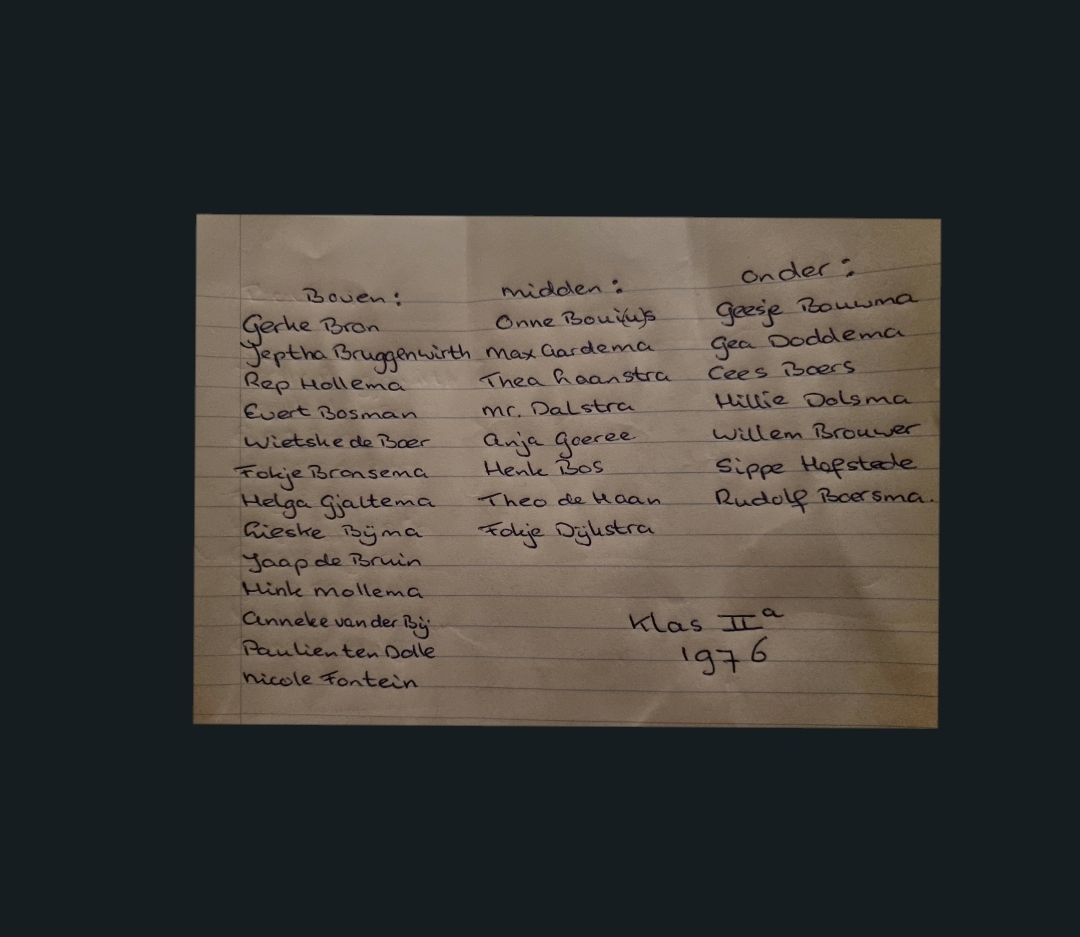 Boven:
Gerke Bron
Jeptha Bruggenwirth
Rep Hollema
Evert Bosman
Wietske de Boer
Fokje Bronsema
Helga Gjaltema
Lieske Bijma
Jaap de Bruin
Hink Mollema
Anneke van der Bij
Paulien ten Dolle
Nicole Fontein
midden:
Onne Boui(u)s
Max Gardema
Thea Laanstra
mr. Dalstra
Anja Goeree
Henk Bos
Theo de Haan
Fokje Dijkstra
onder:
Geesje Bouwma
Gea Doddema
Cees Boers
Hillie Dolsma
Willem Brouwer
Sippe Hofstede
Rudolf Boersma.
Klas IIa
1976